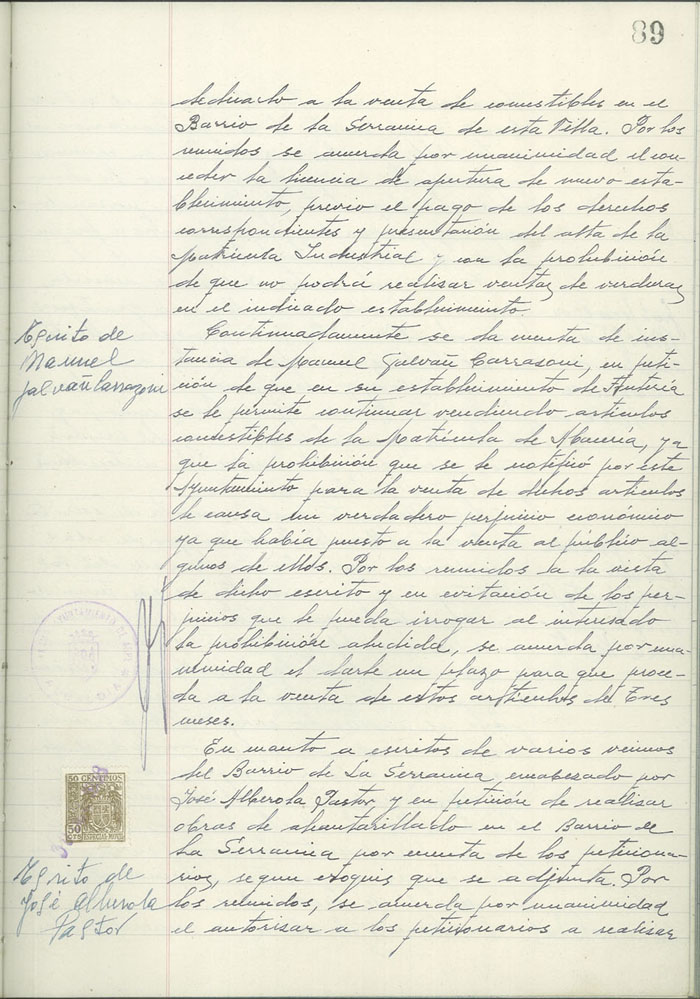 89
dedicarlo a la venta de comestibles en el
Barrio de la Serranica de esta Villa. Por los
reunidos se acuerda por unanimidad el con-
ceder la licencia de apertura de nuevo esta-
blecimiento, previo el pago de los derechos
correspondientes y presentación del alta de la
Matrícula Industrial y con la prohibición
de que no podrá realizar ventas de verduras
en el indicado establecimiento.
Escrito de
Manuel
Galvañ Carrazoni
Continuadamente se da cuenta de ins-
tancia de Manuel Galvañ Carrasoni, en peti-
ción de que en su establecimiento de
se le permita continuar vendiendo artículos
comestibles de la Matrícula de Abacería, ya
que la prohibición que se le notificó por este
Ayuntamiento para la venta de dichos artículos
le causa un verdadero perjuicio económico
ya que había puesto a la venta al público al-
gunos de ellos. Por los reunidos a la vista
de dicho escrito y en evitación de los per-
juicios que le pueda irrogar al interesado
la prohibición aludida, se acuerda por una-
nimidad el darle un plazo para que proce-
da a la venta de estos artículos de Tres
meses.
En cuanto a escritos de varios vecinos
del Barrio de La Serranica, encabezado por
José Alberola Pastor, y en petición de realizar
obras de alcantarillado en el Barrio de
La Serranica por cuenta de los peticiona-
rios, segun croquis que se adjunta. Por
los reunidos, se acuerda por unanimidad
el autorizar a los peticionarios a realizar
50 CENTIMOS
50
CTS
ESPECIAL MOVIL
Escrito de
José Alberola
Pastor